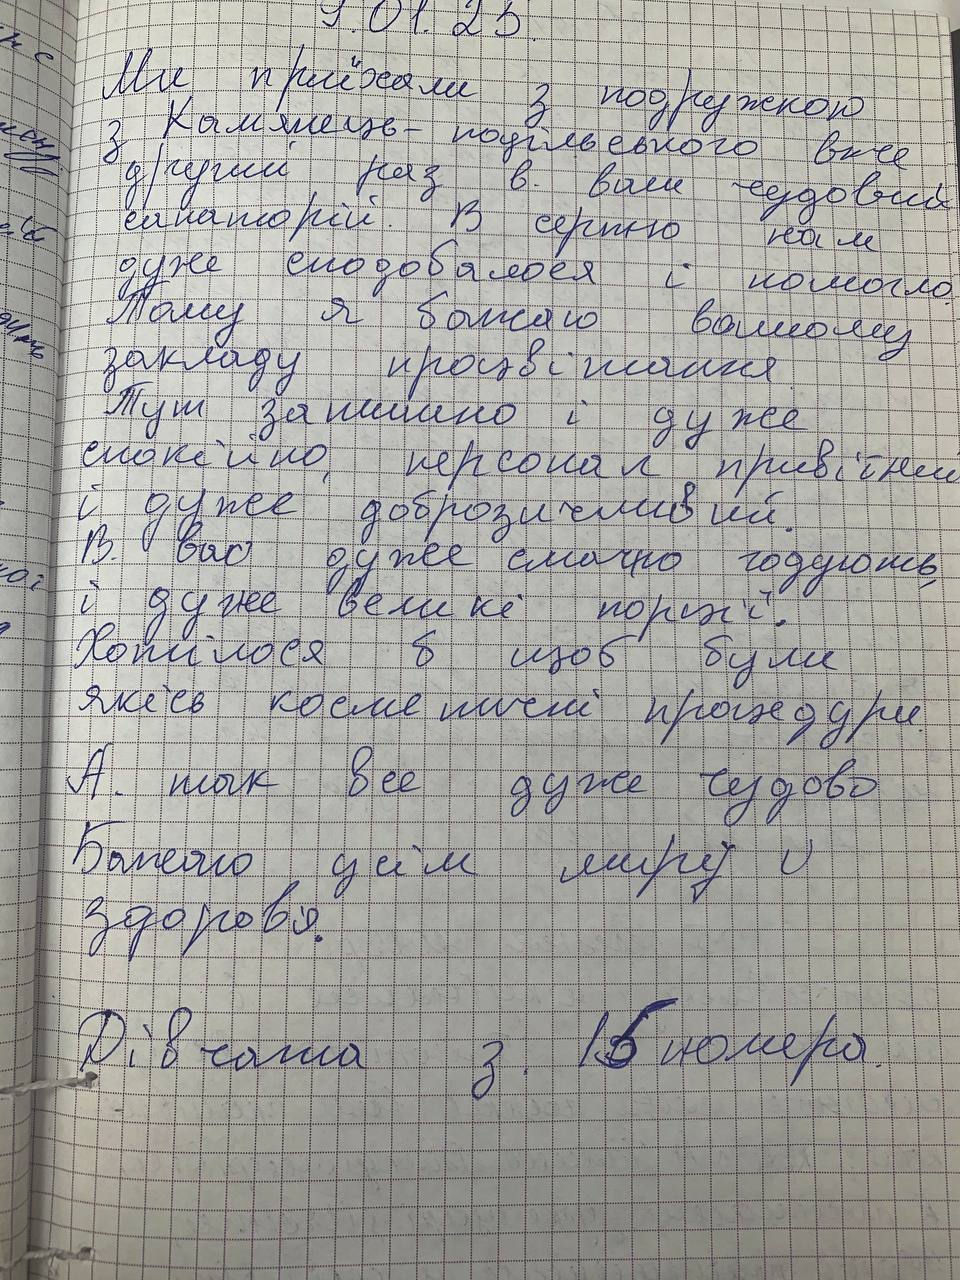 9.01.23.
Ми приїхали з подружкою
з Камянець-подільського вже
другий раз в. ваш чудовий
санаторій. В серпню нам
дуже сподобалося і помогло.
Тому я бажаю вашому
закладу процвітання.
Тут затишно і дуже
спокійно, персонал привітний
і дуже доброзичливий.
В. вас дуже смачно годують,
і дуже великі порції.
Хотілося б щоб були
якесь косметичні процедури.
А. так все дуже чудово
Бажаю усім миру и
здоровя.
Дівчата з. 15 номера.